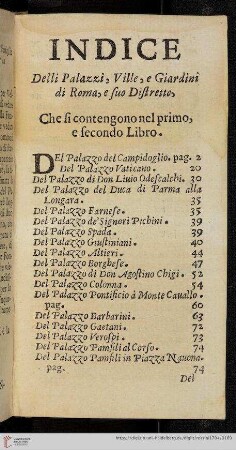 INDICE
Delli Palazzi, Ville, e Giardini
di Roma, e suo Distretto,
Che si contengono nel primo,
e secondo Libro.
DEl Palazzo del Campidoglio. pag. 2
Del Palazzo Vaticano. 20
Del Palazzo di Don Liuio Odescalchi. 30
Del Palazzo del Duca di Parma alla
Longara. 35
Del Palazzo Farnese. 35
Del Palazzo de'Signori Pichini. 39
Del Palazzo Spada. 39
Del Palazzo Giustiniani. 40
Del Palazzo Altieri. 44
Del Palazzo Borghese. 47
Del Palazzo di Don Agostino Chigi. 52
Del Palazzo Colonna. 54
Del Palazzo Pontificio à Monte Cauallo.
pag. 60
Del Palazzo Barbarini. 63
Del Palazzo Gaetani. 72
Del Palazzo Verospi. 73
Del Palazzo Panfili al Corso. 74
Del Palazzo Panfili in Piazza Nauona.
pag. 74
Del